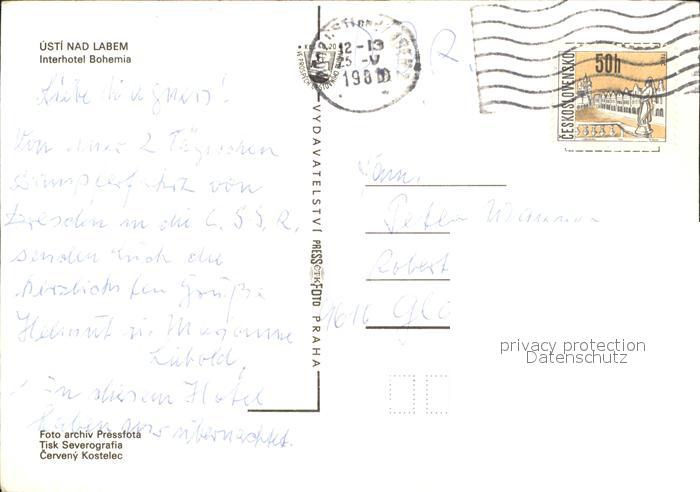 ÚSTÍ NAD LABEM
Interhotel Bohemia
Von einer 2 Tägischen
Dampferfahrt von
Dresden in die C.S.S.R.
senden Euch die
herzlichsten Grüße
Helmut u. Marianne
Liebold
In diesem Hotel
haben wir übernachtet.
Foto archiv Pressfoto
Tisk Severografia
Červený Kostelec
VYDAVATELSTVÍ PRESSFOTO PRAHA
ČTK
12-13
V
1980
ČESKOSLOVENSKO
50h
Fam.
Peter
Robert
privacy protection
Datenschutz